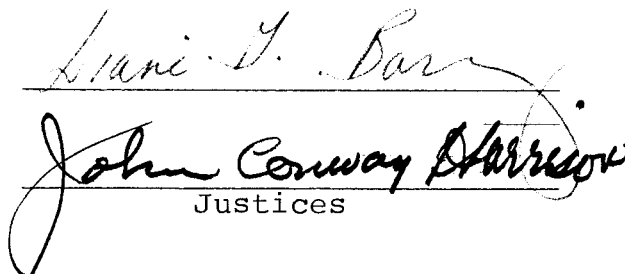 Diane G. Barz
John Conway Harrison
Justices